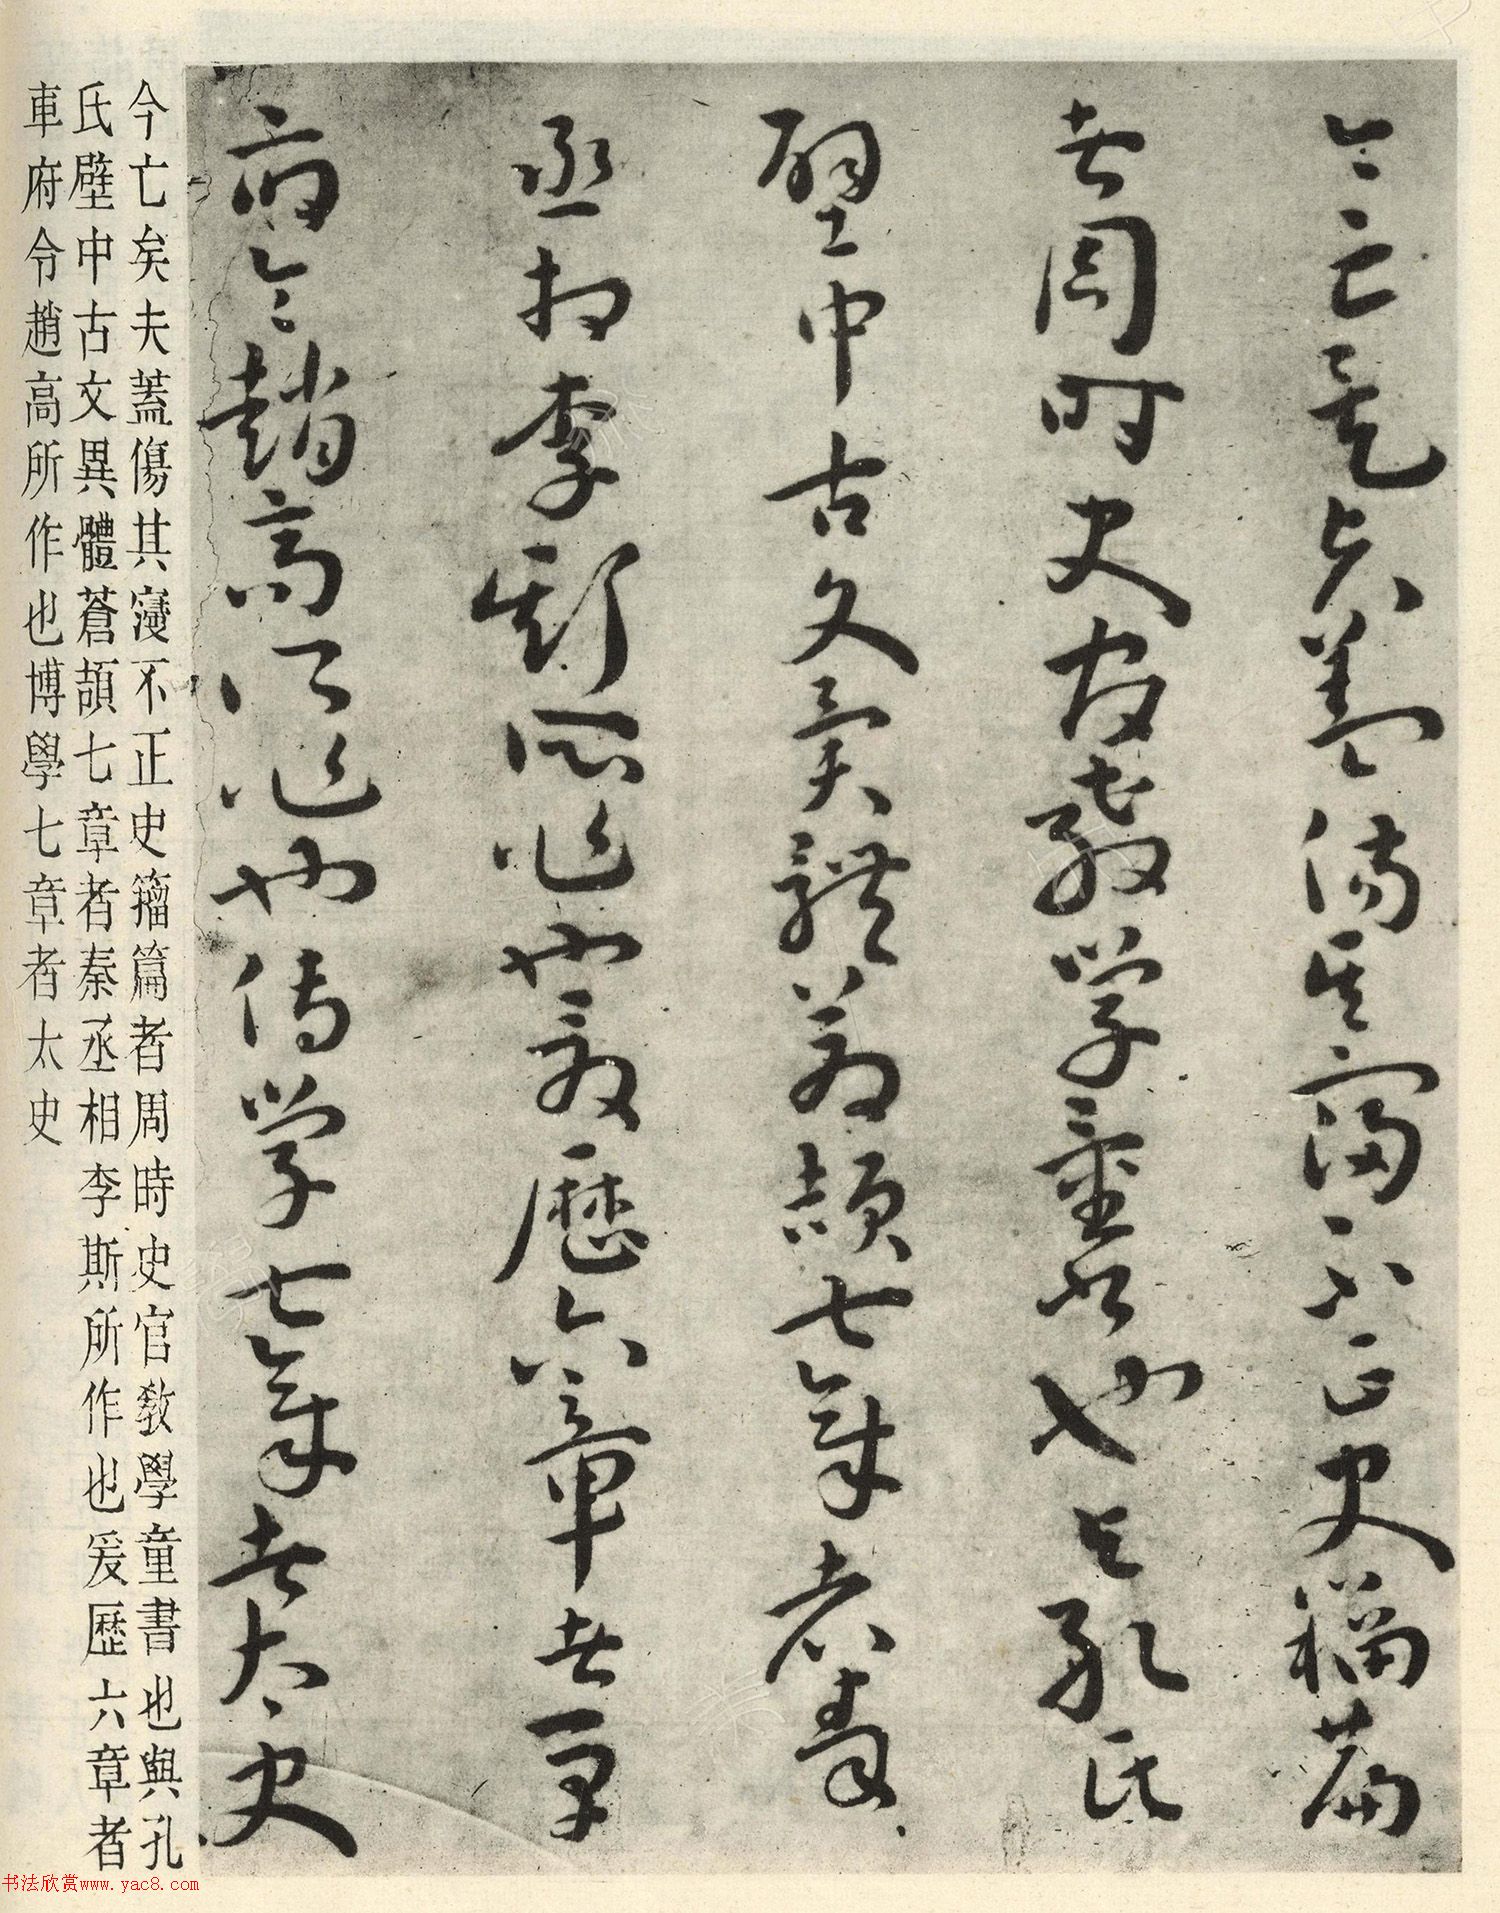 今亡矣夫蓋傷其寖不正史籀篇
者周時史官教學童書也与孔氏
壁中古文異體蒼頡七章者秦
丞相李斯所作也爰歷六章者車
府令趙高所作也博學七章者太史
今亡矣夫蓋傷其寖不正史籀篇者周時史官敎學童書也與孔
氏壁中古文異體蒼頡七章者秦丞相李斯所作也爰歷六章者
車府令趙高所作也博學七章者太史
书法欣赏www.yac8.com